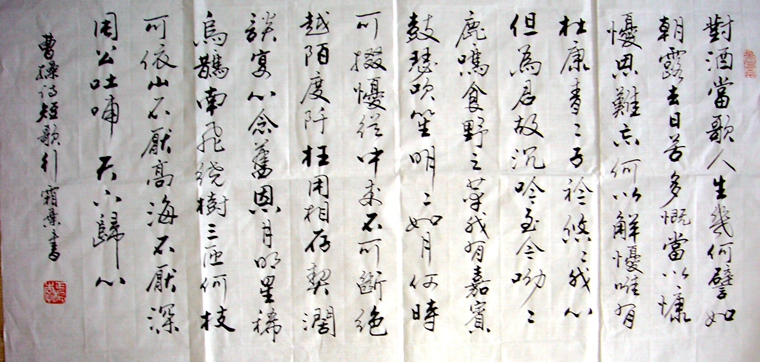 對酒當歌人生幾何譬如
朝露去日苦多慨當以慷
懮思難忘何以解懮唯有
杜康青〻子衿悠〻我心
但為君故沉吟至今呦〻
鹿鳴食野之苹我有嘉賓
鼓瑟吹笙明〻如月何時
可掇懮從中來不可斷絕
越陌度阡枉用相存契濶
談宴心念舊恩月明星稀
烏鵲南飛繞樹三匝何枝
可依山不厭高海不厭深
周公吐哺天下歸心
曹操詩短歌行 霜葉書